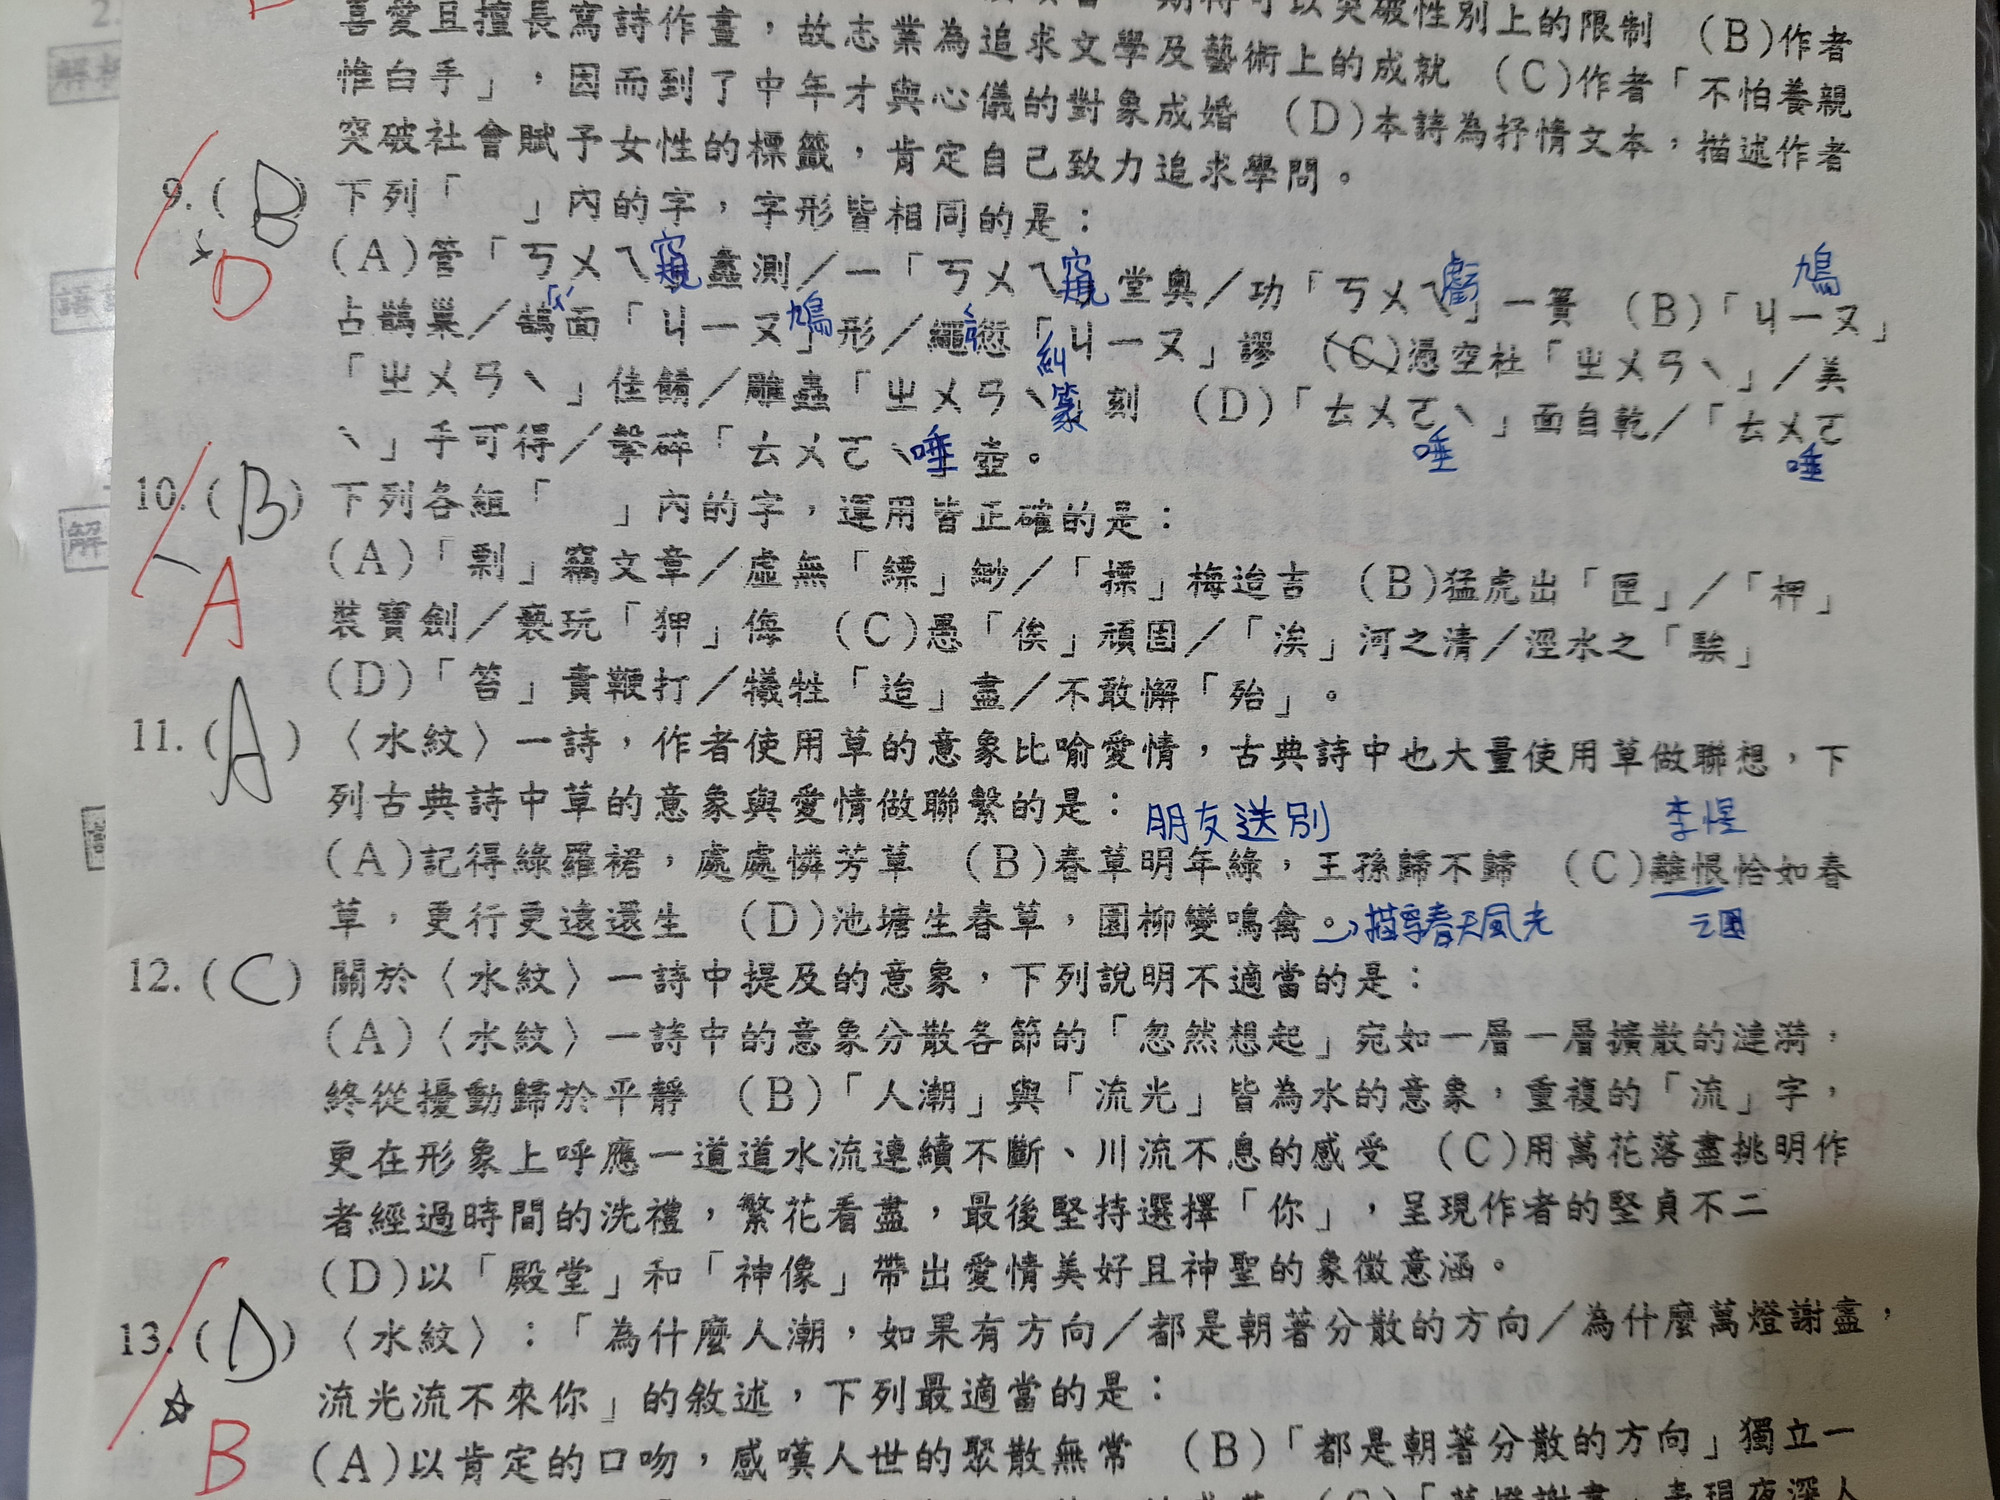 喜愛且擅長寫詩作畫，故志業為追求文學及藝術上的成就 (C)作者「不怕養親
惟白手」，因而到了中年才與心儀的對象成婚 (D)本詩為抒情文本，描述作者
突破社會賦予女性的標籤，肯定自己致力追求學問。
9.(B) 下列「　」內的字，字形皆相同的是：
D
(A)管「ㄎㄨㄟ窺蠡測／一「ㄎㄨㄟ窺堂奧／功「ㄎㄨㄟ虧」一簣 (B)「ㄐㄧㄡ」鳩
占鵲巢／鵠面「ㄐㄧㄡ鳩」形／繩愆「ㄐㄧㄡ」謬糾 (C)憑空杜「ㄓㄨㄢˋ」／美
「ㄓㄨㄢˋ」佳餚／雕蟲「ㄓㄨㄢˋ篆刻 (D)「ㄊㄨㄛˋ」面自乾／「ㄊㄨㄛ
唾 唾
ˋ」手可得／擊碎「ㄊㄨㄛˋ唾壺。
10.(B) 下列各組「　」內的字，運用皆正確的是：
A
(A)「剽」竊文章／虛無「縹」緲／「摽」梅迨吉 (B)猛虎出「匣」／「柙」
裝寶劍／褻玩「狎」侮 (C)愚「俟」頑固／「涘」河之清／涇水之「騃」
(D)「笞」責鞭打／犧牲「迨」盡／不敢懈「殆」。
11.(A) 〈水紋〉一詩，作者使用草的意象比喻愛情，古典詩中也大量使用草做聯想，下
列古典詩中草的意象與愛情做聯繫的是：
朋友送別 李煜
(A)記得綠羅裙，處處憐芳草 (B)春草明年綠，王孫歸不歸 (C)離恨恰如春
草，更行更遠還生 (D)池塘生春草，園柳變鳴禽。→描寫春天風光
12.(C) 關於〈水紋〉一詩中提及的意象，下列說明不適當的是：
(A)〈水紋〉一詩中的意象分散各節的「忽然想起」宛如一層一層擴散的漣漪，
終從擾動歸於平靜 (B)「人潮」與「流光」皆為水的意象，重複的「流」字，
更在形象上呼應一道道水流連續不斷、川流不息的感受 (C)用萬花落盡挑明作
者經過時間的洗禮，繁花看盡，最後堅持選擇「你」，呈現作者的堅貞不二
(D)以「殿堂」和「神像」帶出愛情美好且神聖的象徵意涵。
13.(D) 〈水紋〉：「為什麼人潮，如果有方向／都是朝著分散的方向／為什麼萬燈謝盡，
☆ B
流光流不來你」的敘述，下列最適當的是：
(A)以肯定的口吻，感嘆人世的聚散無常 (B)「都是朝著分散的方向」獨立一